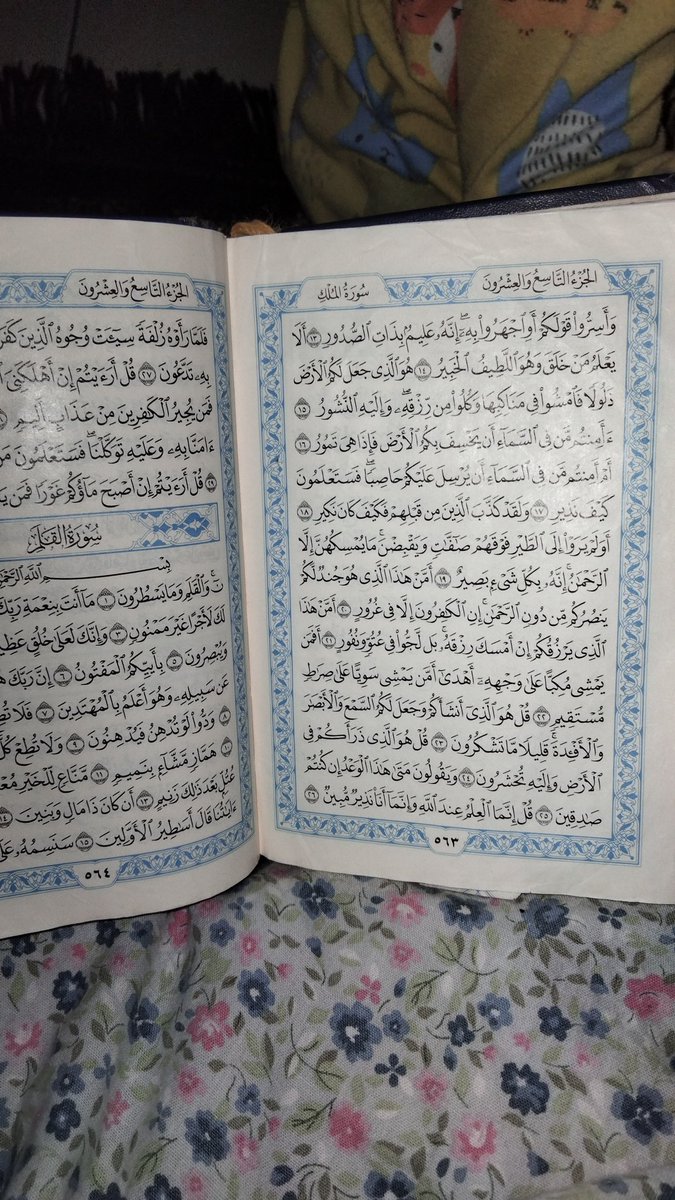 الجُزْءُ التَّاسِعُ وَالعِشْرُونَ
سُورَةُ المُلْكِ
وَأَسِرُّوا۟ قَوْلَكُمْ أَوِ ٱجْهَرُوا۟ بِهِۦٓ ۖ إِنَّهُۥ عَلِيمٌۢ بِذَاتِ ٱلصُّدُورِ ١٣ أَلَا
يَعْلَمُ مَنْ خَلَقَ وَهُوَ ٱللَّطِيفُ ٱلْخَبِيرُ ١٤ هُوَ ٱلَّذِى جَعَلَ لَكُمُ ٱلْأَرْضَ
ذَلُولًا فَٱمْشُوا۟ فِى مَنَاكِبِهَا وَكُلُوا۟ مِن رِّزْقِهِۦ ۖ وَإِلَيْهِ ٱلنُّشُورُ ١٥
ءَأَمِنتُم مَّن فِى ٱلسَّمَآءِ أَن يَخْسِفَ بِكُمُ ٱلْأَرْضَ فَإِذَا هِىَ تَمُورُ ١٦
أَمْ أَمِنتُم مَّن فِى ٱلسَّمَآءِ أَن يُرْسِلَ عَلَيْكُمْ حَاصِبًا ۖ فَسَتَعْلَمُونَ
كَيْفَ نَذِيرِ ١٧ وَلَقَدْ كَذَّبَ ٱلَّذِينَ مِن قَبْلِهِمْ فَكَيْفَ كَانَ نَكِيرِ ١٨
أَوَلَمْ يَرَوْا۟ إِلَى ٱلطَّيْرِ فَوْقَهُمْ صَٰٓفَّٰتٍ وَيَقْبِضْنَ ۚ مَا يُمْسِكُهُنَّ إِلَّا
ٱلرَّحْمَٰنُ ۚ إِنَّهُۥ بِكُلِّ شَىْءٍۭ بَصِيرٌ ١٩ أَمَّنْ هَٰذَا ٱلَّذِى هُوَ جُندٌ لَّكُمْ
يَنصُرُكُم مِّن دُونِ ٱلرَّحْمَٰنِ ۚ إِنِ ٱلْكَٰفِرُونَ إِلَّا فِى غُرُورٍ ٢٠ أَمَّنْ هَٰذَا
ٱلَّذِى يَرْزُقُكُمْ إِنْ أَمْسَكَ رِزْقَهُۥ ۚ بَل لَّجُّوا۟ فِى عُتُوٍّ وَنُفُورٍ ٢١ أَفَمَن
يَمْشِى مُكِبًّا عَلَىٰ وَجْهِهِۦٓ أَهْدَىٰٓ أَمَّن يَمْشِى سَوِيًّا عَلَىٰ صِرَٰطٍ
مُّسْتَقِيمٍ ٢٢ قُلْ هُوَ ٱلَّذِىٓ أَنشَأَكُمْ وَجَعَلَ لَكُمُ ٱلسَّمْعَ وَٱلْأَبْصَٰرَ
وَٱلْأَفْـِٔدَةَ ۖ قَلِيلًا مَّا تَشْكُرُونَ ٢٣ قُلْ هُوَ ٱلَّذِى ذَرَأَكُمْ فِى
ٱلْأَرْضِ وَإِلَيْهِ تُحْشَرُونَ ٢٤ وَيَقُولُونَ مَتَىٰ هَٰذَا ٱلْوَعْدُ إِن كُنتُمْ
صَٰدِقِينَ ٢٥ قُلْ إِنَّمَا ٱلْعِلْمُ عِندَ ٱللَّهِ وَإِنَّمَآ أَنَا۠ نَذِيرٌ مُّبِينٌ ٢٦
٥٦٣
الجُزْءُ التَّاسِعُ وَالعِشْرُونَ
فَلَمَّا رَأَوْهُ زُلْفَةً سِيٓـَٔتْ وُجُوهُ ٱلَّذِينَ
بِهِۦ تَدَّعُونَ ٢٧ قُلْ أَرَءَيْتُمْ إِنْ أَهْلَكَنِىَ
فَمَن يُجِيرُ ٱلْكَٰفِرِينَ مِنْ عَذَابٍ أَلِيمٍ
ءَامَنَّا بِهِۦ وَعَلَيْهِ تَوَكَّلْنَا ۖ فَسَتَعْلَمُونَ
٢٩ قُلْ أَرَءَيْتُمْ إِنْ أَصْبَحَ مَآؤُكُمْ غَوْرًا فَمَن
سُورَةُ القَلَمِ
بِسْمِ ٱللَّهِ
نٓ ۚ وَٱلْقَلَمِ وَمَا يَسْطُرُونَ ١ مَآ أَنتَ بِنِعْمَةِ رَبِّكَ
لَكَ لَأَجْرًا غَيْرَ مَمْنُونٍ ٣ وَإِنَّكَ لَعَلَىٰ خُلُقٍ
وَيُبْصِرُونَ ٥ بِأَييِّكُمُ ٱلْمَفْتُونُ ٦ إِنَّ رَبَّكَ
عَن سَبِيلِهِۦ وَهُوَ أَعْلَمُ بِٱلْمُهْتَدِينَ ٧ فَلَا
٨ وَدُّوا۟ لَوْ تُدْهِنُ فَيُدْهِنُونَ ٩ وَلَا تُطِعْ
١٠ هَمَّازٍ مَّشَّآءٍۭ بِنَمِيمٍ ١١ مَّنَّاعٍ لِّلْخَيْرِ
عُتُلٍّۭ بَعْدَ ذَٰلِكَ زَنِيمٍ ١٣ أَن كَانَ ذَا مَالٍ وَبَنِينَ ١٤
ءَايَٰتُنَا قَالَ أَسَٰطِيرُ ٱلْأَوَّلِينَ ١٥ سَنَسِمُهُۥ
٥٦٤